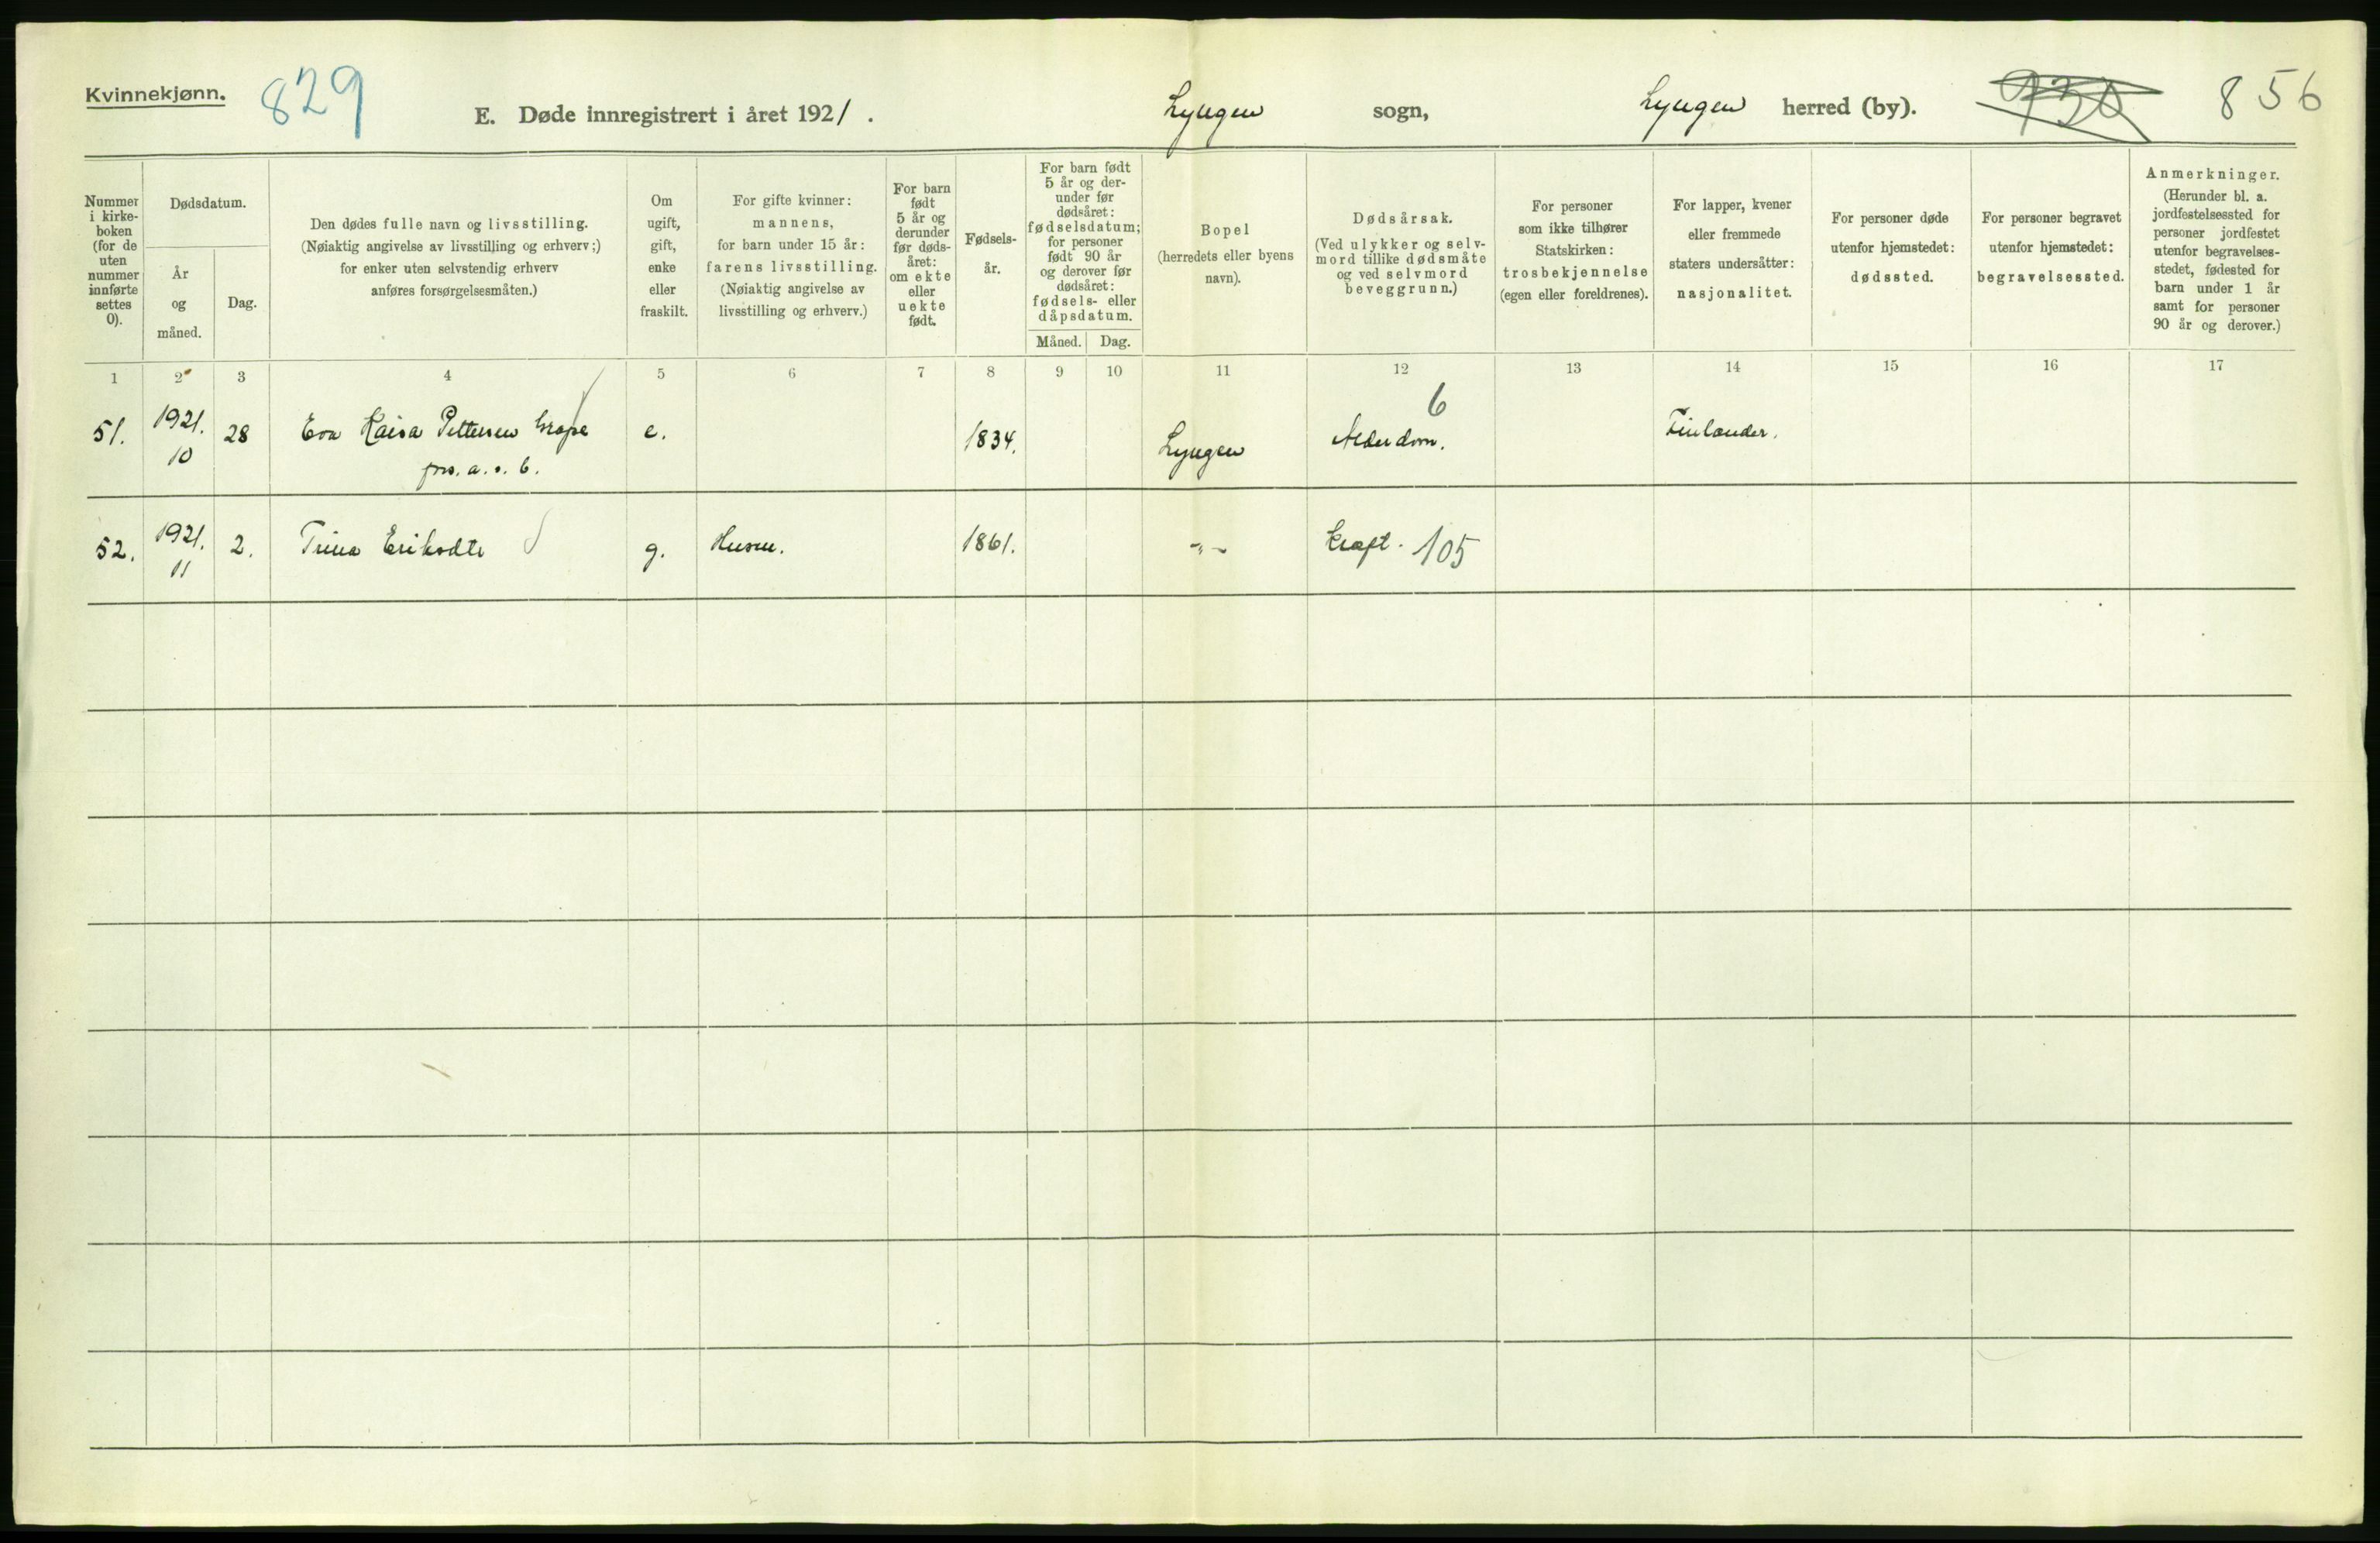 Kvinnekjønn.
829
E. Døde innregistrert i året 1921.
Lyngen sogn,
Lyngen herred (by).
930
856
Nummer i kirke-boken (for de uten nummer innførte settes 0).
Dødsdatum.
År og måned.
Dag.
Den dødes fulle navn og livsstilling.
(Nøiaktig angivelse av livsstilling og erhverv;)
for enker uten selvstendig erhverv
anføres forsørgelsesmåten.)
Om ugift, gift, enke eller fraskilt.
For gifte kvinner:
mannens,
for barn under 15 år:
farens livsstilling.
(Nøiaktig angivelse av
livsstilling og erhverv.)
For barn født 5 år og derunder før døds-året: om ekte eller uekte født.
Fødsels-år.
For barn født 5 år og der-under før dødsåret: fødselsdatum; for personer født 90 år og derover før dødsåret: fødsels- eller dåpsdatum.
Måned.
Dag.
Bopel
(herredets eller byens
navn).
Dødsårsak.
(Ved ulykker og selv-
mord tillike dødsmåte
og ved selvmord
beveggrunn.)
For personer
som ikke tilhører
Statskirken:
trosbekjennelse
(egen eller foreldrenes).
For lapper, kvener
eller fremmede
staters undersåtter:
nasjonalitet.
For personer døde
utenfor hjemstedet:
dødssted.
For personer begravet
utenfor hjemstedet:
begravelsessted.
Anmerkninger.
(Herunder bl. a.
jordfestelsessted for
personer jordfestet
utenfor begravelses-
stedet, fødested for
barn under 1 år
samt for personer
90 år og derover.)
1 2 3 4 5 6 7 8 9 10 11 12 13 14 15 16 17
6
51. 1921. 10 28 Eva Kaisa Pettersen e. 1834. Lyngen Alderdom. Finlender.
a. s. b.
52. 1921. 11 2. Trina Eriksdtr g. Husm. 1861. -"- Kreft. 105